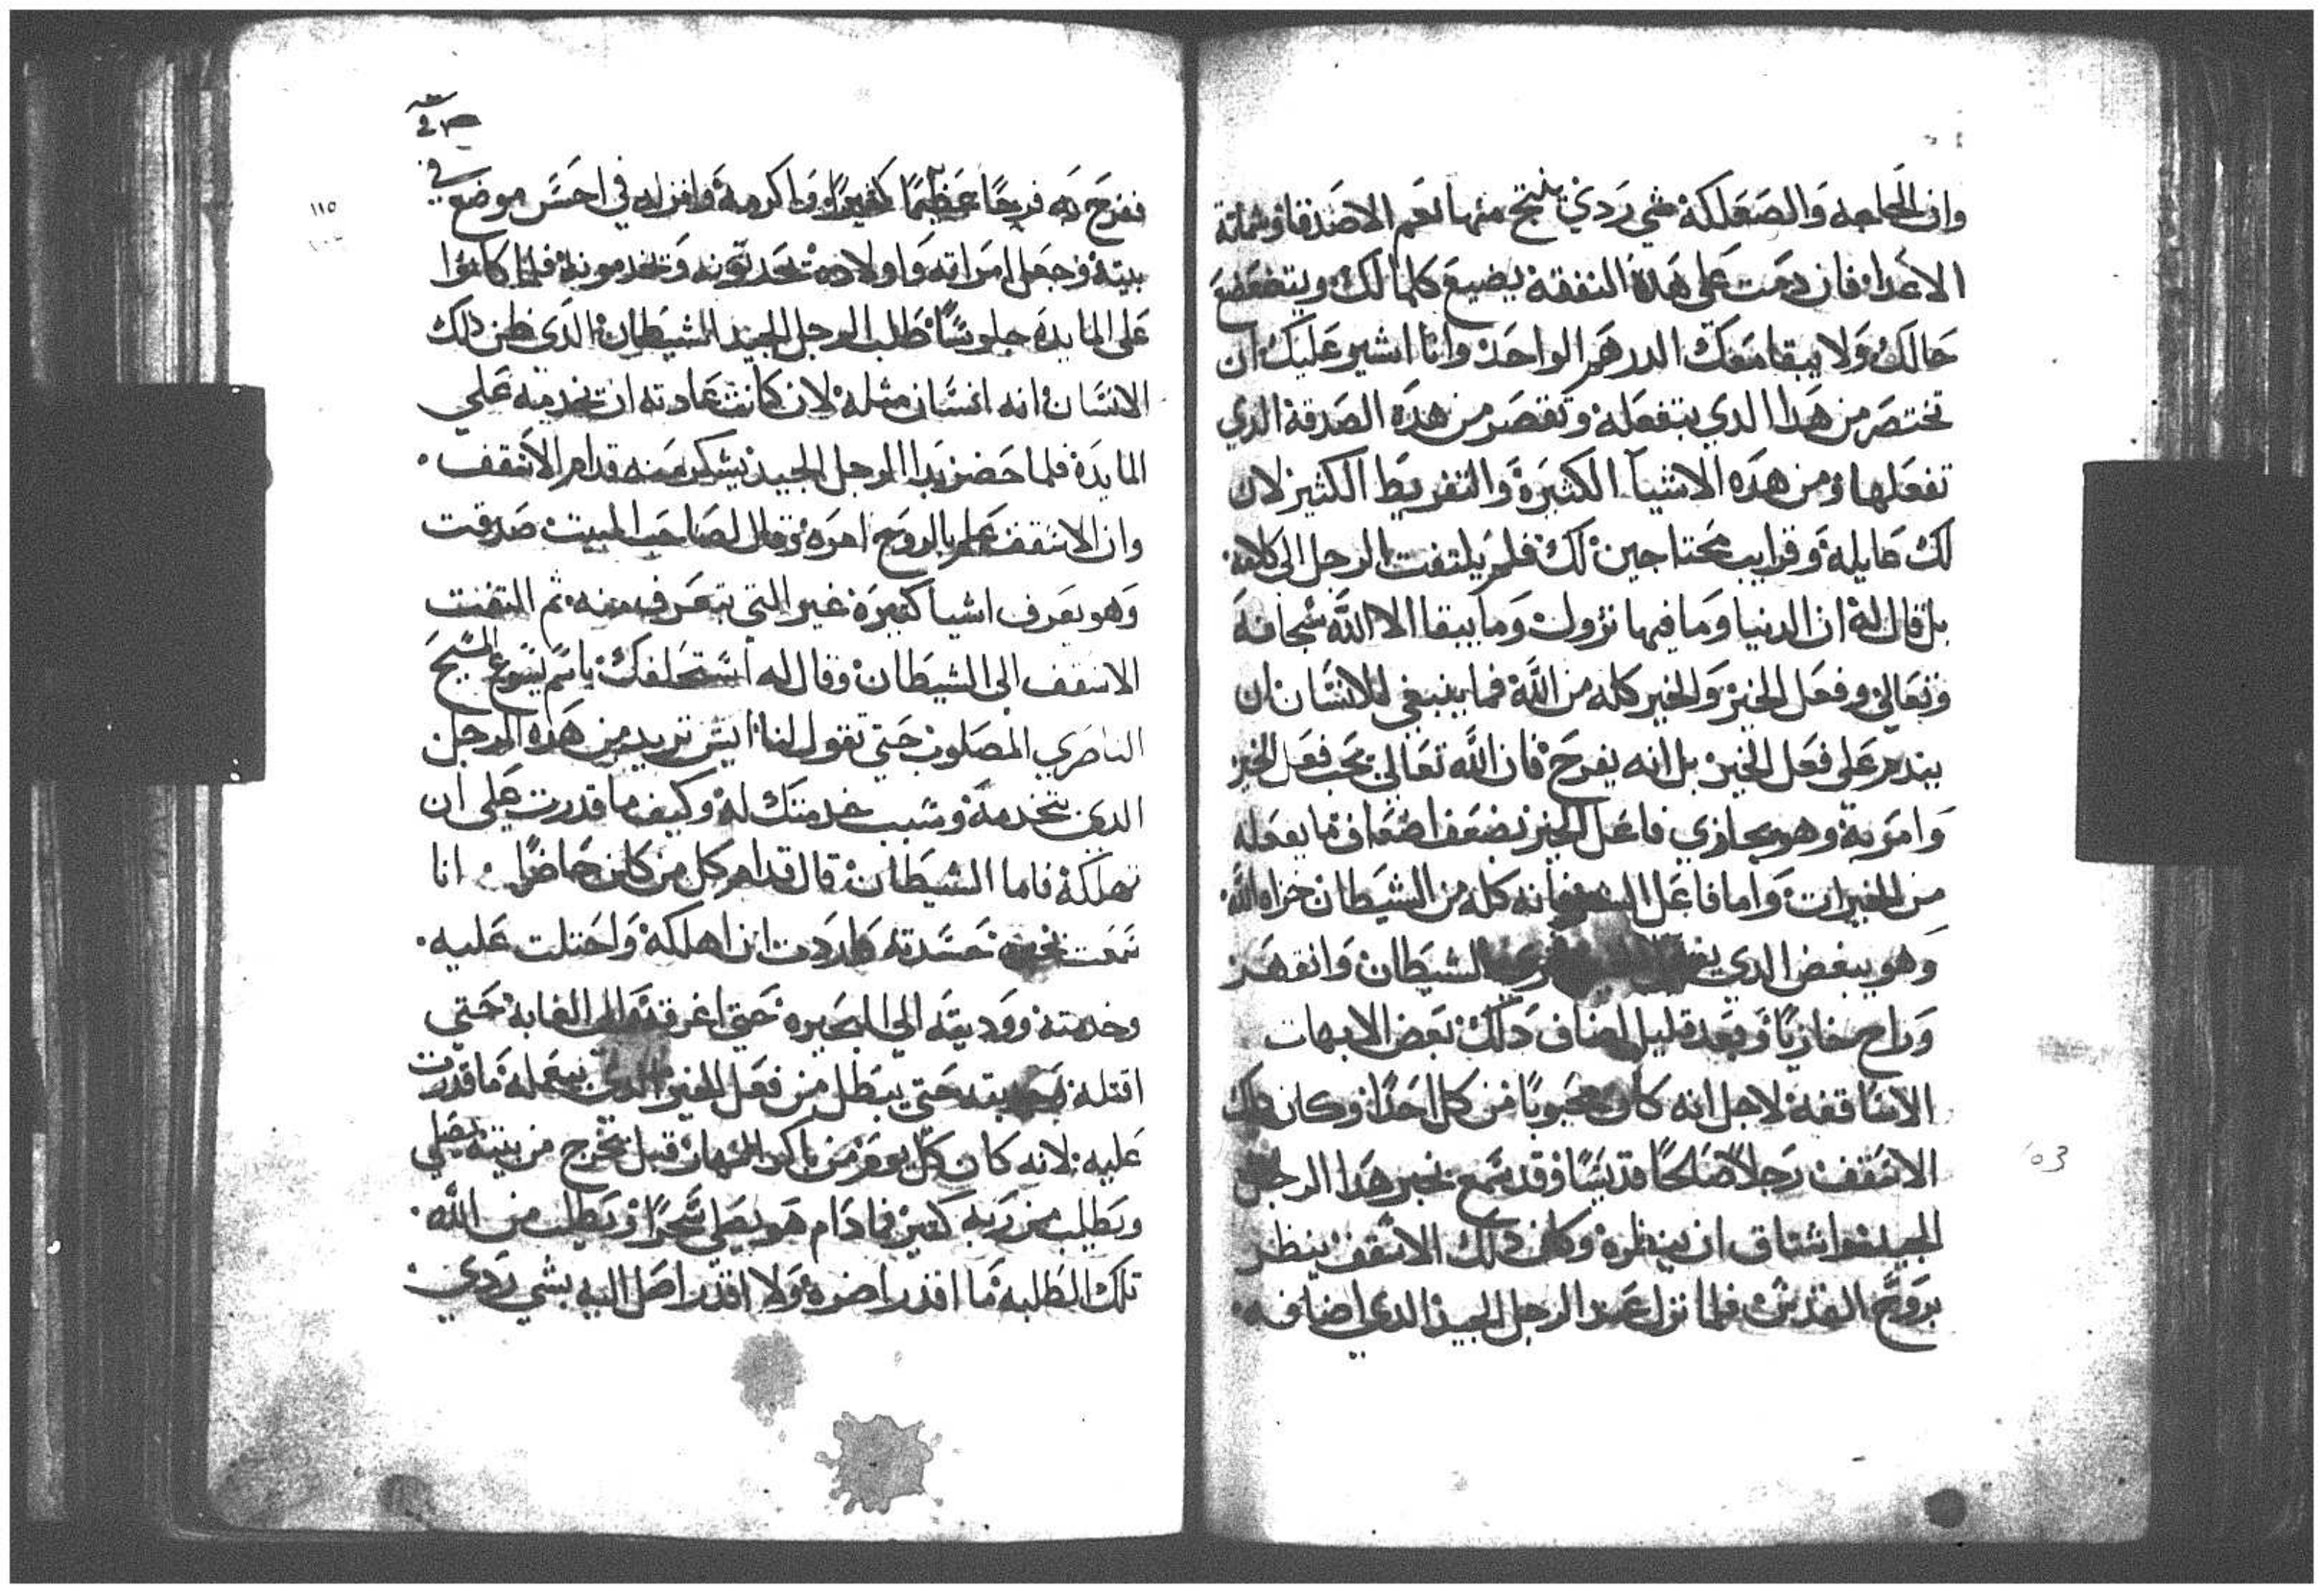 وان الحاجه والصعلكة شي ردي ينتج منها لغم الاصدقا وشماتة
الاعدا فان دمت على هده النفقه يضيع كلمالك ويتضعضع
حالك ولا يبقا معك الدرهم الواحد وانا اشير عليك ان
تختصر من هدا الدي بتفعله وتقصر من هده الصدقة الدي
تفعلها ومن هده الاشيا الكثيرة والتفريط الكثير لان
لك عايله وقرايب محتاجين لك فلم يلتفت الرجل الى كلامه
بل قال له ان الدنيا وما فيها تزول وما يبقا الا الله سبحانه
وتعالي وفعل الخير والخير كله من الله فما ينبغي للانسان ان
يندم على فعل الخير بل انه يفرح فان الله تعالي يحب فعل الخير
وامر به وهو يجازي فاعل الخير بضعف اضعاف ما يعمله
من الخيرات واما فاعل الشر فانه كله من الشيطان خزاه الله
وهو يبغض الدي الشيطان وانقهر
وراح مخازيا وبعد قليل اضاف دلك بعض الابهات
الاساقفه لاجل انه كان محبوبا من كل احدا وكان دلك
الاسقف رجلا صالحا قديسا وقد سمع بخبر هدا الرجل
الجيد واشتاق ان ينظره وكان دلك الاسقف ينظر
بروح القدس فلما نزل عند الرجل الجيد الدي اضافه
١١٥
ففرح به فرحا عظيما كثيرا واكرمه وانزله في احسن موضع في
بيته وجعل امراته واولاده تحدتونه وتخدمونه فلما كانوا
على المايده جلوسا طلب الرجل الجيد الشيطان الدي ظن دلك
الانسان انه انسان مثله لان كانت عادته ان تخدمه علي
المايدة فلما حضر بدا الرجل الجيد يشكر منه قدام الاسقف
وان الاسقف علم بالروح امره وقال لصاحب البيت صدقت
وهو يعرف اشيا كتيرة غير التي تعرف منه ثم التفت
الاسقف الى الشيطان وقال له استحلفك باسم يسوع المسيح
الناصري المصلوب حتي تقول لنا ايش تريد من هده الرجل
الدي تخدمه وسبب خدمتك له وكيف ما قدرت على ان
تهلكه فاما الشيطان قال قدام كل من كان حاضرا انا
سمعت بخبره حسدته واردت ان اهلكه واحتلت عليه
وخدمته ووديته الي البحيره حتي اغرقه والى الغابه حتي
اقتله حتي يبطل من فعل الخير الدي بيعمله ما قدرت
عليه لانه كان كل يوم من باكر النهار قبل تخرج من بيته يصلي
ويطلب من ربه كتير فما دام هو يصلي سحرا ويطلب من الله
تلك الطلبه ما اقدر اضره ولا اقدر اصل اليه بشي ردي